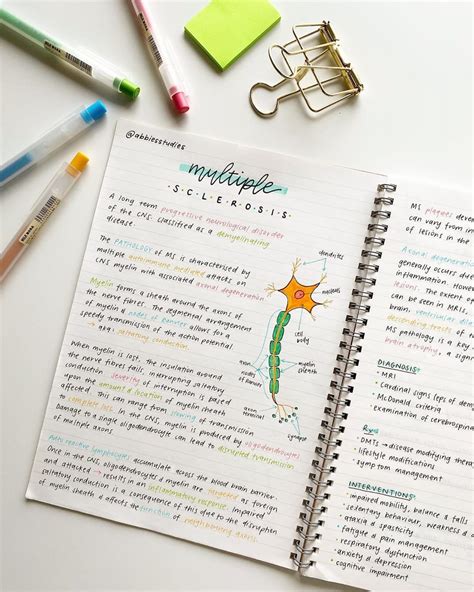 @abbiesstudies
multiple
SCLEROSIS
A long term progressive neurological disorder
of the CNS. classified as a demyelinating
disease.
The PATHOLOGY of MS is characterised by
multiple autoimmune mediated attacks on
CNS myelin with associated axonal degeneration
Myelin forms a sheath around the axons of
the nerve fibres. The segmental arrangement
of myelin & nodes of Ranvier allows for a
speedy transmission of the action potential
aka: saltatory conduction
When myelin is lost, the insulation around
the nerve fibres fails, interrupting saltatory
conduction. severity of interruption is based
upon the amount & location of myelin sheath
affected. This can range from slowing of transmission
to complete loss. In the CNS, myelin is produced by oligodendrocytes
Damage to a single oligodendrocyte can lead to disrupted transmission
of multiple axons.
Auto reactive lymphocytes accumulate across the blood brain barrier.
Once in the CNS, oligodendrocytes & myelin are targeted as foreign
and attacked → results in an inflammatory response. Impaired
saltatory conduction is a consequence of this due to the disruption
of myelin sheath & affects the function of neighbouring axons.
dendrites
nucleus
cell
body
axon
nodes
of Ranvier
myelin
sheath
axon
terminal
synapse
MS plaques
can vary from
of lesions in the
Axonal degenerat
generally occurs
inflammation. How
The extent
can be seen in MRIs,
MS pathology is a key
brain atrophy, a sign
DIAGNOSIS:
• MRI
• Cardinal signs (eg. dem
• McDonald criteria
• examination of cerebrosp
Rx:
• DMTs → disease modifying ther
• lifestyle modifications
• symptom management
INTERVENTIONS:
• impaired mobility, balance &
• sedentary behaviour, weakness & d
• ataxia & spasticity
• fatigue & pain management
• respiratory dysfunction
• anxiety & depression
• cognitive impairment